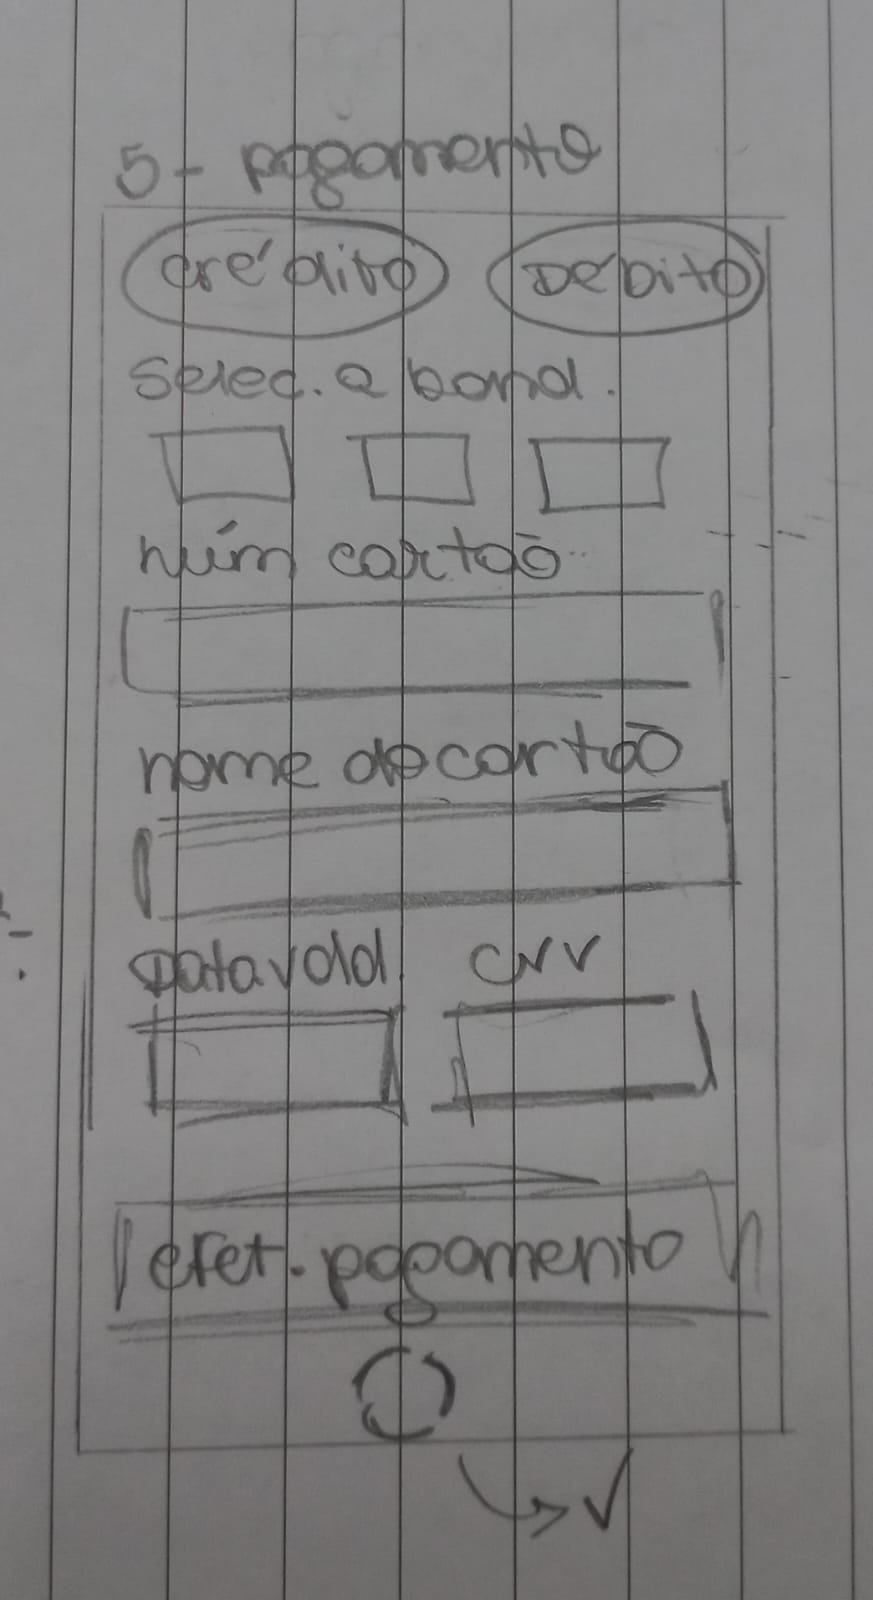 5- pagamento
crédito DÉBito
selec. a band.
núm cartão
nome do cartão
Data vald. CVV
efet. pagamento